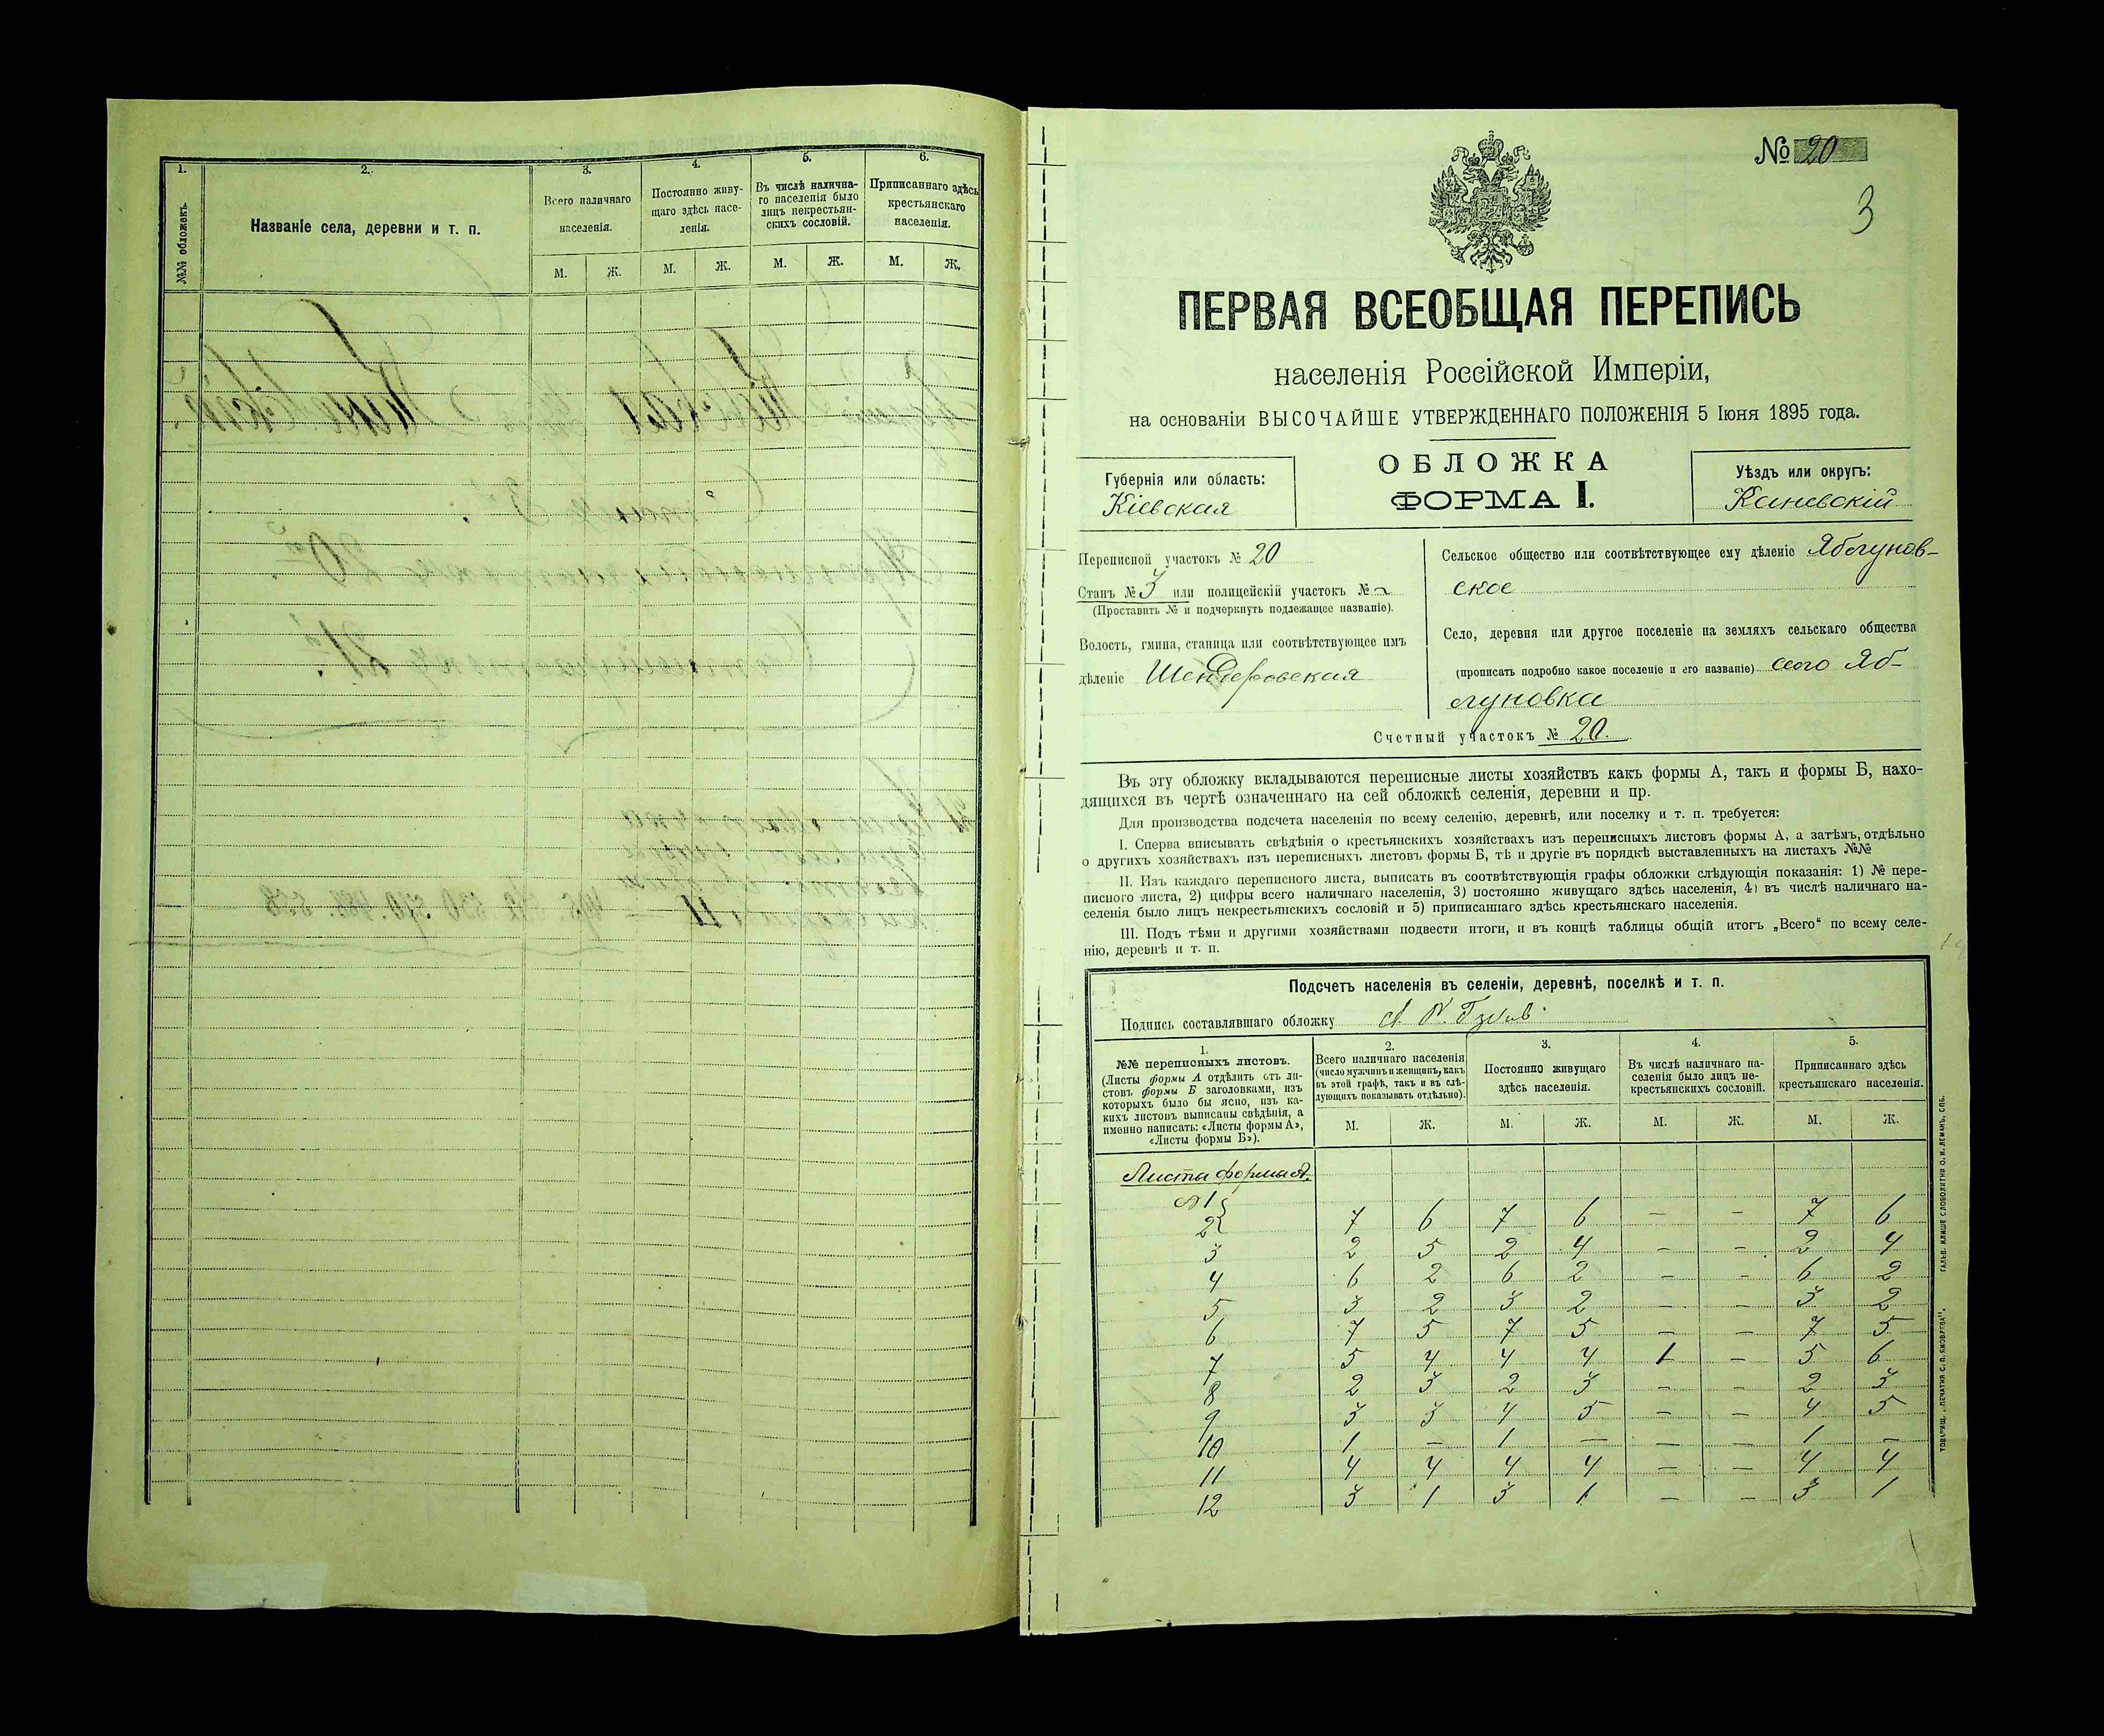 1.
2.
3.
4.
5.
6.
№№ обложекъ.
Названіе села, деревни и т. п.
Всего наличнаго
населенія.
Постоянно живу-
щаго здѣсь насе-
ленія.
Въ числѣ налична-
го населенія было
лицъ некрестьян-
скихъ сословій.
Приписаннаго здѣсь
крестьянскаго
населенія.
М. Ж. М. Ж. М. Ж. М. Ж.
№ 20
3
ПЕРВАЯ ВСЕОБЩАЯ ПЕРЕПИСЬ
населенія Россійской Имперіи,
на основаніи ВЫСОЧАЙШЕ УТВЕРЖДЕННАГО ПОЛОЖЕНІЯ 5 Іюня 1895 года.
ОБЛОЖКА
ФОРМА I.
Губернія или область:
Кіевская
Уѣздъ или округъ:
Каневскій
Переписной участокъ № 20
Станъ № 3 или полицейскій участокъ №
(Проставить № и подчеркнуть подлежащее названіе).
Волость, гмина, станица или соотвѣтствующее имъ
дѣленіе Шендеровская
Сельское общество или соотвѣтствующее ему дѣленіе Яблунов-
ское
Село, деревня или другое поселеніе на земляхъ сельскаго общества
(прописать подробно какое поселеніе и его названіе) село Яб-
луновка
Счетный участокъ № 20.
Въ эту обложку вкладываются переписные листы хозяйствъ какъ формы А, такъ и формы Б, нахо-
дящихся въ чертѣ означеннаго на сей обложкѣ селенія, деревни и пр.
Для производства подсчета населенія по всему селенію, деревнѣ, или поселку и т. п. требуется:
I. Сперва вписывать свѣдѣнія о крестьянскихъ хозяйствахъ изъ переписныхъ листовъ формы А, а затѣмъ, отдѣльно
о другихъ хозяйствахъ изъ переписныхъ листовъ формы Б, тѣ и другіе въ порядкѣ выставленныхъ на листахъ №№
II. Изъ каждаго переписного листа, выписать въ соотвѣтствующія графы обложки слѣдующія показанія: 1) № пере-
писного листа, 2) цифры всего наличнаго населенія, 3) постоянно живущаго здѣсь населенія, 4) въ числѣ наличнаго на-
селенія было лицъ некрестьянскихъ сословій и 5) приписаннаго здѣсь крестьянскаго населенія.
III. Подъ тѣми и другими хозяйствами подвести итоги, и въ концѣ таблицы общій итогъ „Всего“ по всему селе-
нію, деревнѣ и т. п.
Подсчетъ населенія въ селеніи, деревнѣ, поселкѣ и т. п.
Подпись составлявшаго обложку
1.
№№ переписныхъ листовъ.
(Листы формы А отдѣлить отъ ли-
стовъ формы Б заголовками, изъ
которыхъ было бы ясно, изъ ка-
кихъ листовъ выписаны свѣдѣнія, а
именно написать: «Листы формы А»,
«Листы формы Б»).
2.
Всего наличнаго населенія
(число мужчинъ и женщинъ, какъ
въ этой графѣ, такъ и въ слѣ-
дующихъ показывать отдѣльно).
3.
Постоянно живущаго
здѣсь населенія.
4.
Въ числѣ наличнаго на-
селенія было лицъ не-
крестьянскихъ сословій.
5.
Приписаннаго здѣсь
крестьянскаго населенія.
М. Ж. М. Ж. М. Ж. М. Ж.
Листы формы А.
№ 1
2 7 6 7 6 - - 7 6
3 2 5 2 4 - - 2 4
4 6 2 6 2 - - 6 2
5 3 2 3 2 - - 3 2
6 7 5 7 5 - - 7 5
7 5 4 4 4 1 - 5 6
8 2 3 2 3 - - 2 3
9 3 3 4 5 - - 4 5
10 1 - 1 - - - 1 -
11 4 4 4 4 - - 4 4
12 3 1 3 1 - - 3 1
ТОВАРИЩ. „ПЕЧАТНЯ С. П. ЯКОВЛЕВА“. ГАЛЬВ. КЛИШЕ СЛОВОЛИТНИ О. И. ЛЕМАНЪ, СПБ.